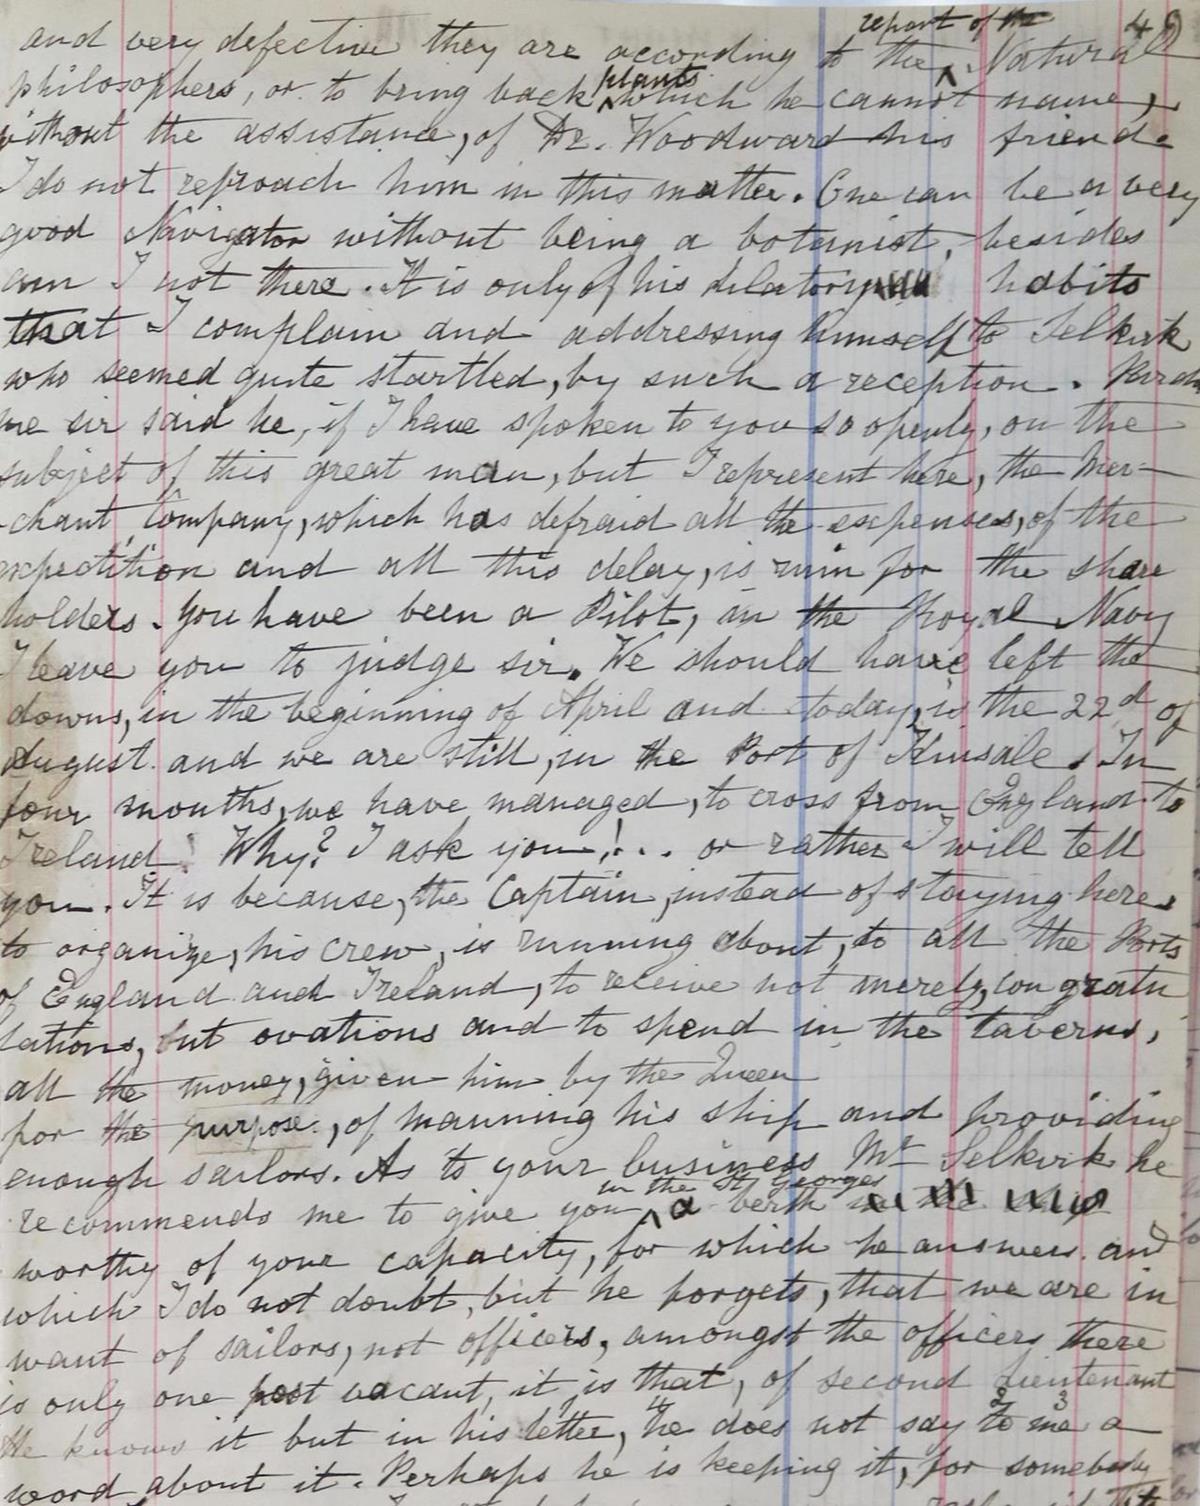 report of the 49
and very defective they are according to the Natural
philosophers, or to bring back plants which he cannot name,
without the assistance, of Dr. Woodward his friend.
I do not reproach him in this matter. One can be a very
good Navigator without being a botanist, besides
am I not there. It is only of his dilatory habits
that I complain and addressing himself to Selkirk
who seemed quite startled, by such a reception. Pardon
me sir said he, if I have spoken to you so openly, on the
subject of this great man, but I represent here, the Mer-
-chant Company, which has defraid all the expenses, of the
expectition and all this delay, is ruin for the share
holders. You have been a Pilot, in the Royal Navy
I leave you to judge sir. We should have left the
downs, in the beginning of April and today, is the 22d of
August and we are still, in the Port of Kinsale. In
four months, we have managed, to cross from England to
Ireland! Why? I ask you!... or rather I will tell
you. It is because, the Captain, instead of staying here
to organize, his crew, is running about, to all the Ports
of England and Ireland, to receive not merely, congratu
lations, but ovations and to spend in the taverns,
all the money, given him by the Queen
for the purpose, of manning his ship and providing
enough sailors. As to your business Mr Selkirk he
in the St Georges
recommends me to give you a berth
worthy of your capacity, for which he answers and
which I do not doubt, but he forgets, that we are in
want of sailors, not officers, amongst the officers there
is only one post vacant, it is that, of second Lieutenant
He knows it but in his letter, he does not say to me a
word about it. Perhaps he is keeping it, for somebody